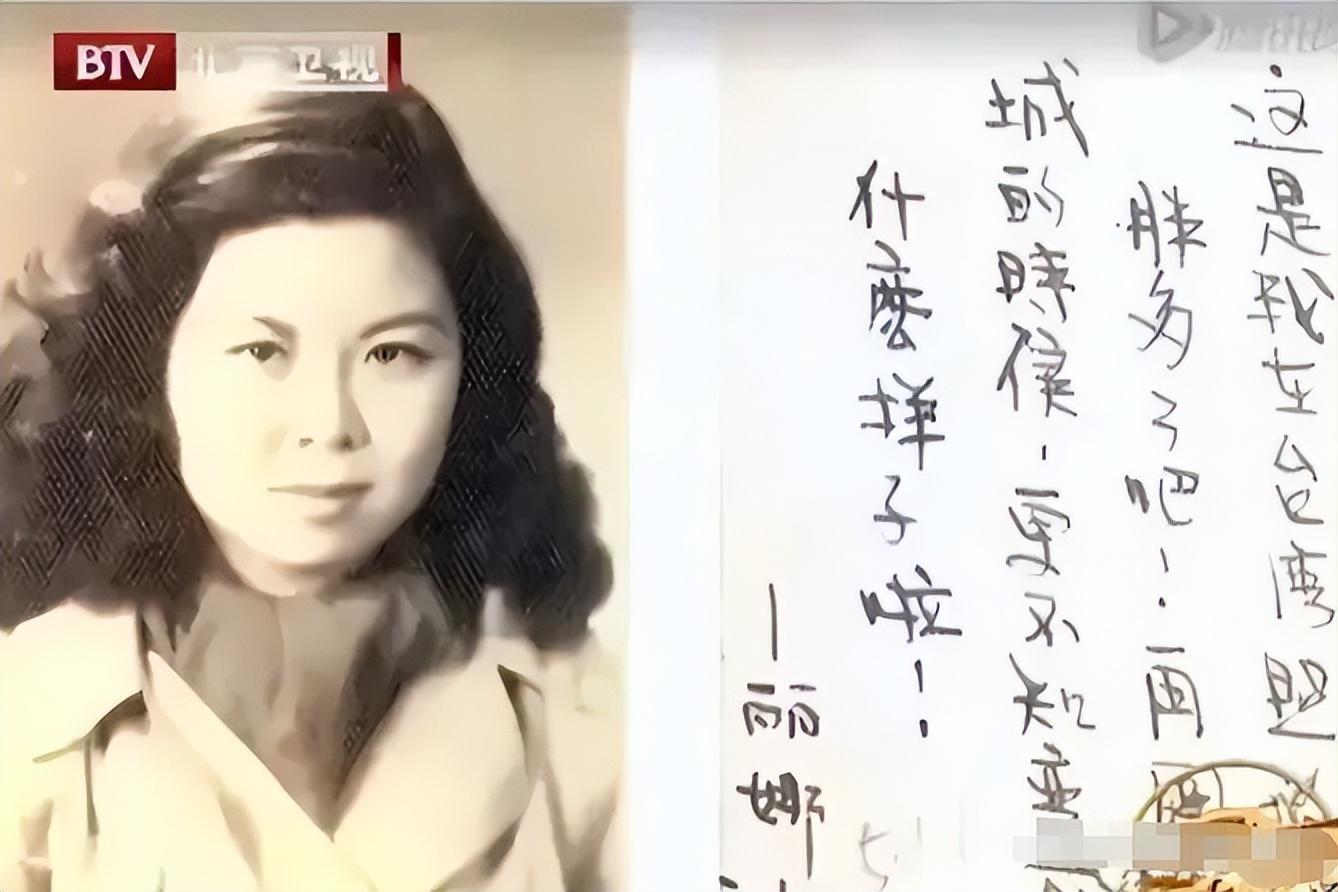 BTV 卫视
这是我在台湾照
胖多了吧！再
城的時候，更不知变
什麼样子啦！
—丽娜